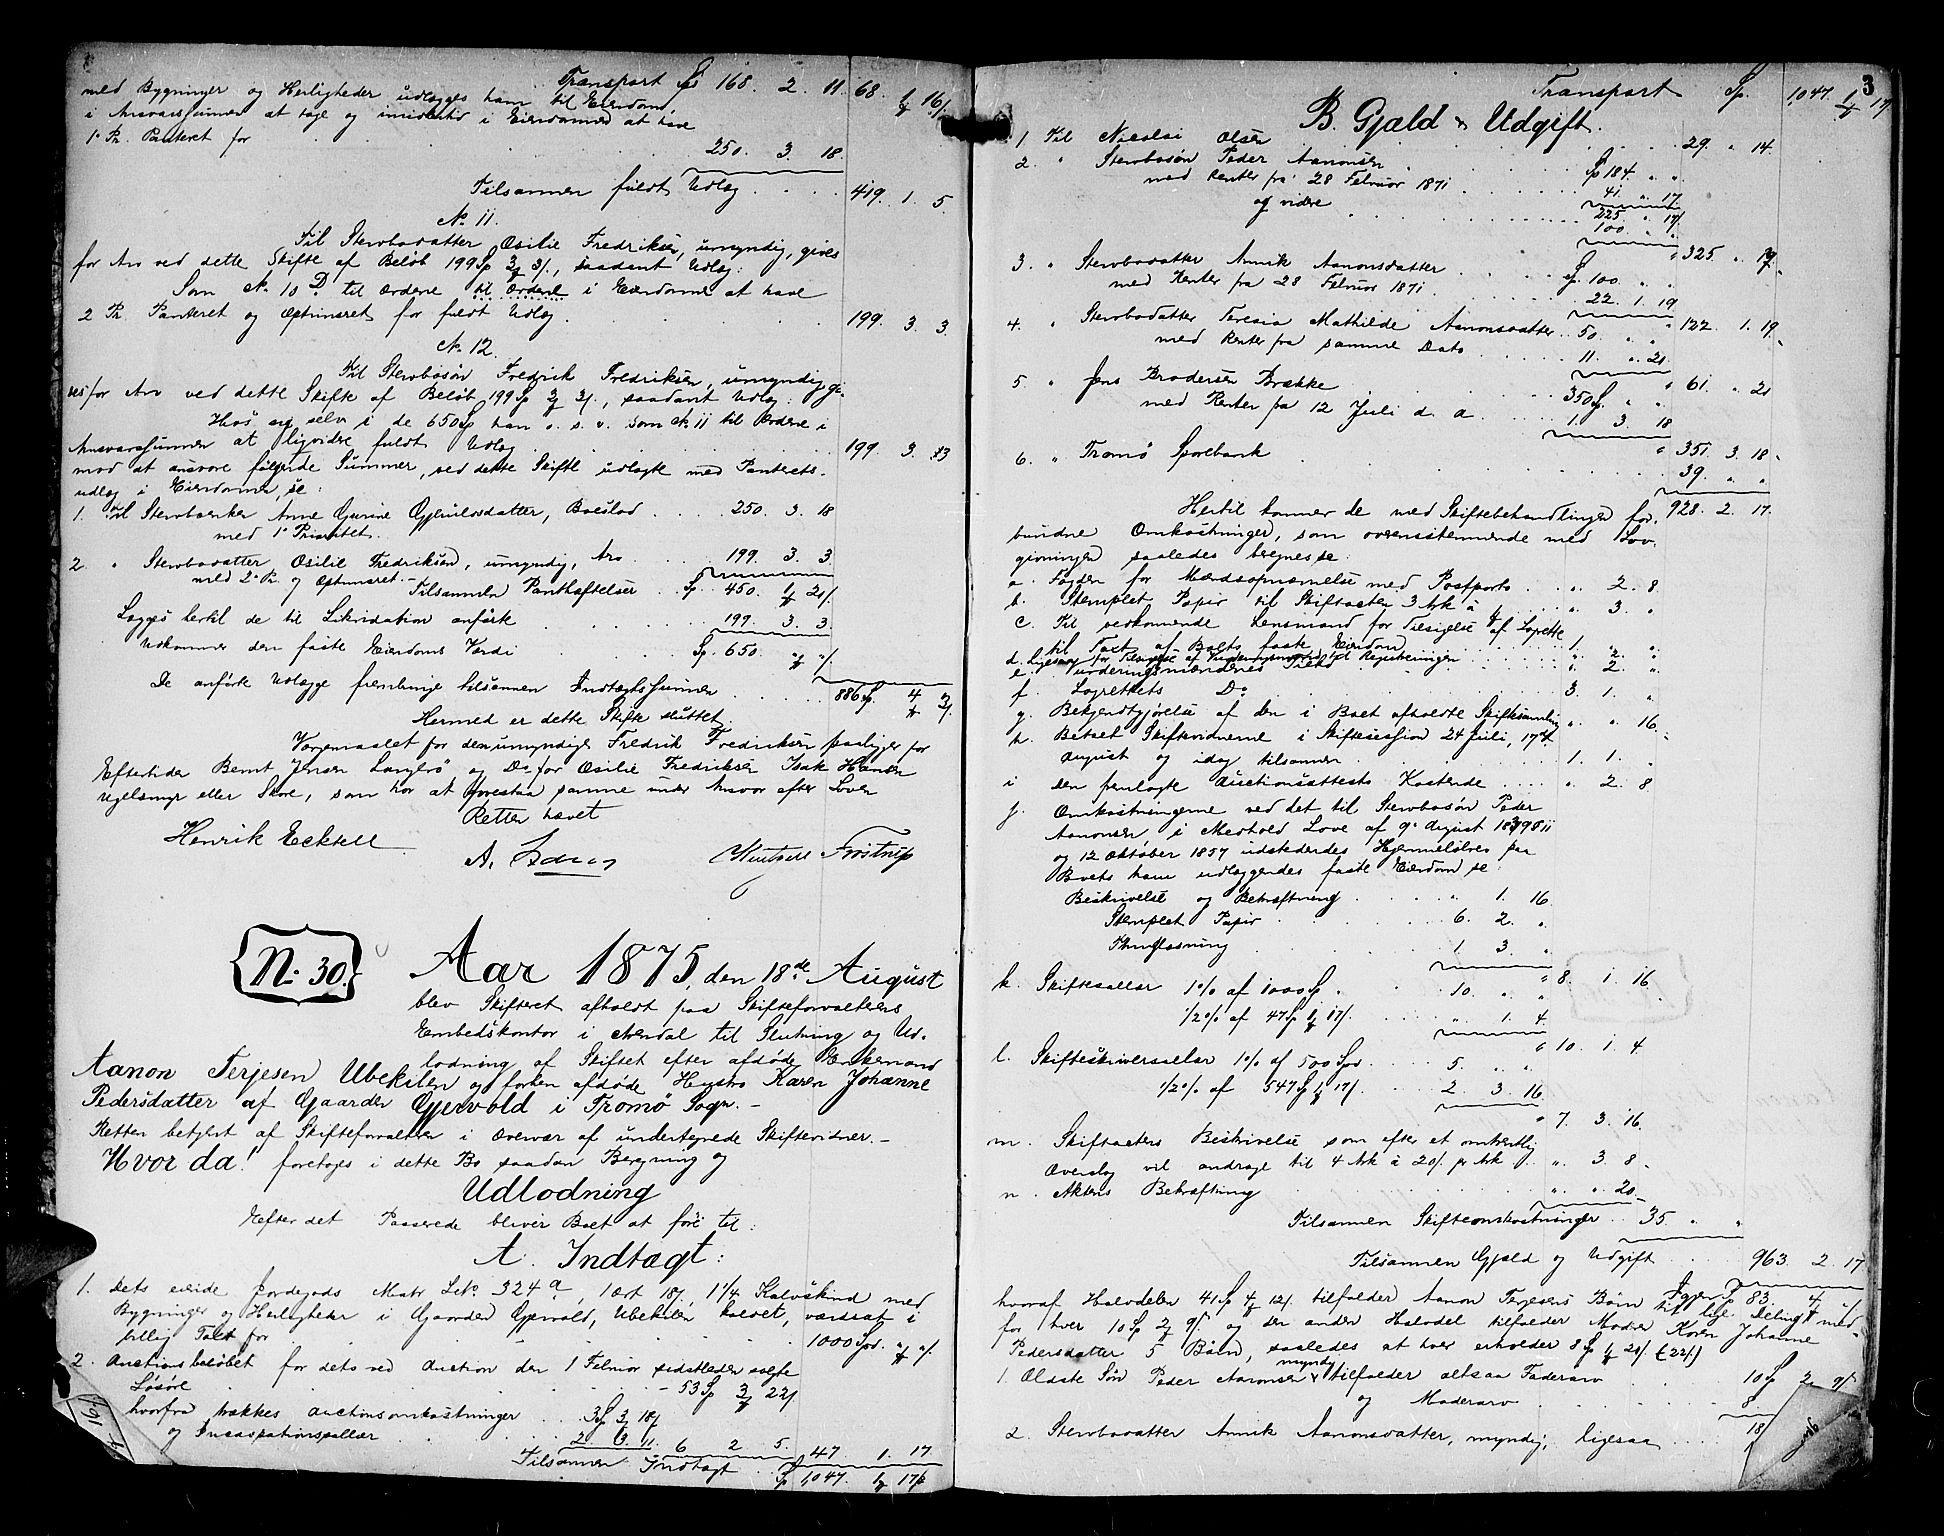 Transport Sp 168. 2. 11. 68. 1 16/
med Bygninger og Herligheder udlægges ham til Eiendom,
i Ansvarssummen at tage og imidlertid i Eiendommen at have
1ste Pr. Panteret for 250. 3. 18.
Tilsammen fuldt Udlæg 419. 1. 5.
No 11.
Til Stervbodatter Osilie Fredriksen, umyndig, gives
for Arv ved dette Skifte af Beløb 199 Sp 3 3/, saadant Udlæg:
Som No 10 D. til Ordene til Ordene i Eiendomme at have
2 Pr. Panteret og Optrinsret for fuldt Udlæg 199. 3. 3.
No 12.
Til Stervbosøn Fredrik Fredriksen, umyndig gi-
ves for Arv ved dette Skifte af Beløb 199 Sp 3 3/, saadant Udlæg:
Hos sig selv i de 650 Sp han o. s. v. som No 11 til Ordene i
Ansvarssummen at liqvidere fuldt Udlæg 199. 3. 3
mod at ansvare følgende Summer, ved dette Skifte udlagte med Panterets-
udlæg i Eiendomme, se:
1. Til Stervbenken Anne Gurine Gjerulvsdatter, Boeslod 250. 3. 18
med 1ste Prioritet.
2. " Stervbodatter Osilie Fredriksen, umyndig, Arv 199. 3. 3
med 2. Pr. og Optrinsret. Tilsammen Panthæftelser Sp. 450. 1 21/.
Lægges hertil de til Likvidation anførte 199. 3. 3.
Udkommer den faste Eiendoms Værdi Sp. 650. " "/.
De anførte Udlægge frembringe tilsammen Indtægtssummen 886 Sp. 4 3/.
Hermed er dette Skifte sluttet.
Værgemaalet for den umyndige Fredrik Fredriksen paaligger for
Eftertiden Bernt Jensen Langbrø og Do for Osilie Fredriksen Isak Hansen
Ugelsmyr eller Skare, som har at forestaa samme under Ansvar efter Loven
Retten hævet
Henrik Eckell A. Wentzell Frøstrup
No. 30. Aar 1875, den 18de August
blev Skifteret afholdt paa Skifteforvalterens
Embedskontor i Arendal til Slutning og Ud-
lodning af Skiftet efter afdøde Enkemand
Aanon Terjesen Ubekilen og forhen afdøde Hustro Karen Johanne
Pedersdatter af Gaarden Gjervold i Tromø Sogn. -
Retten betjent af Skifteforvalteren i Overvær af undertegnede Skiftevidner. -
Hvor da! foretoges i dette Bo saadan Beregning og
Udlodning
Efter det Passerede bliver Boet at føre til:
A. Indtægt:
1. Dets eiende Jordegods Matr. L.No. 324 a, 1 Ort 18/, 1 1/4 Kalvskind med
Bygninger og Herligheter i Gaarden Gjervold, Ubekilen kaldet, værdsat i
billig Taxt for 1000 Spd. " "/.
2. Auctionsbeløbet for dets ved Auction den 1 Februar sidstleden solgte
Løsøre 53 Sp 3 22/
hvorfra trækkes Auctionsomkostninger 3 Sp 3 18/
og Incassationssallær 2. 3. 11. 6 2 5. 47 1. 17
Tilsammen Indtægt Sp 1,047. 1 17/
3
Transport Sp. 1,047. 1 17/
B. Gjæld & Udgift.
1 Til Nicolai Olsen 29. " 14.
2. " Stervbosøn Peder Aanonsen Sp 184. " "
med Renter fra 28 Februar 1871 41. " 17
225. " 17/
og videre 100. " "
" 325 " 17
3. " Stervbodatter Annik Aanonsdatter Sp. 100. " "
med Renter fra 28 Februar 1871 22. 1. 19
4. " Stervbodatter Teresia Mathilde Aanonsdatter 50. " " " 122. 1. 19
med Renter fra samme Dato 11. " 21.
5. " Jens Brodersen Brække 350 Sp. " " " 61. " 21
med Renter fra 12 Juli d. a. 1. 3. 18
" 351. 3. 18
6. " Tromø Sparebank 39. " "
Hertil kommer de med Skiftebehandlingen for- 928. 2. 17.
bundne Omkostninger, som overensstemmende med Lov-
givningen saaledes beregnes se:
a. Fogden for Mændsopnævnelse med Postporto ". 2. 8.
b. Stemplet Papir til Skifteacten 3 Ark à ". 3. "
c. Til vedkommende Lensmand for Tilsigelse af Lagrette
til Taxt af Boets faste Eiendom 1. " "
d. Ligesaa for Tilsigelse af Vurderingsmænd til Registreringen ". 2. "
e. Vurderingsmændenes Tilkommende ". 2. "
f. Lagrettets Do 3. 1. "
g. Bekjendtgjørelse af den i Boet afholdte Skiftesamling " " 16.
h. Betalt Skiftevidnerne i Skiftesession 24 Juli, 17de
August og idag tilsammen 1. 1. "
i den fremlagte Auctionsattests Kostende " 2. 8
j. Omkostningerne ved det til Stervbosøn Peder
Aanonsen i Medhold Love af 9de August 1839 § 11
og 12 October 1857 udstedendes Hjemmelsbrev paa
Boets ham udlæggendes faste Eiendom se:
Beskrivelse og Bekræftning " 1. 16.
Stemplet Papir 6. 2. "
Thinglæsning 1 3. "
" 8. 1. 16
k. Skiftesallær 1% af 1000 Sp. 10. " "
1/2% af 47 Sp 1 17/. " 1. 4.
" 10. 1. 4.
l. Skifteskriversallær 1% af 500 Spd. 5. " "
1/2% af 547 Sp 1 17/. 2. 3. 16
" 7. 3. 16
m. Skifteactens Beskrivelse som efter et omtrentlig
Overslag vil andrage til 4 Ark à 20/. pr Ark ". 3. 8.
n. Aktens Bekræftning ". " 20.
Tilsammen Skifteomkostninger 35. " "
Tilsammen Gjæld og Udgift 963. 2. 17
Igjen Sp 83. 4. "/
hvoraf Halvdelen 41 Sp 4 12/. tilfalder Aanon Terjesens Børn til lige Deling med
for hver 10 Sp 2 9/. og den anden Halvdel tilfalder Moder Karen Johanne
Pedersdatter 5 Børn, saaledes at hver erholder 8 Sp 1 20/. (22/.)
1. Ældste Søn Peder Aanonsen, myndig tilfalder altsaa Faderarv 10 Sp 2 9/.
og Moderarv 8
18
2. Stervbodatter Annik Aanonsdatter, myndig, ligesaa